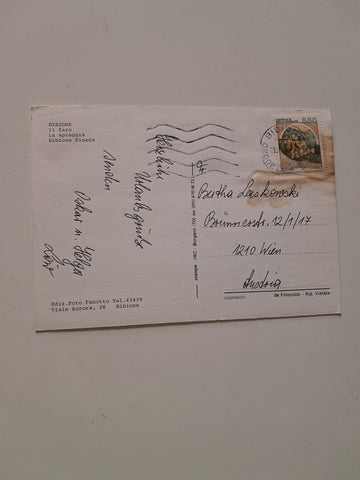 BIBIONE
Il faro
La spiaggia
Bibione Pineda
Herzliche
Urlaubsgrüße
senden
Oskar u. Helga
Bertha Laskowski
Brünnerstr. 12/1/17
1210 Wien
Austria
550
30020 BIB
Ediz. Foto Fanotto Tel. 43439
Viale Aurora, 26 Bibione
da Fotocolor - Rip. Vietata